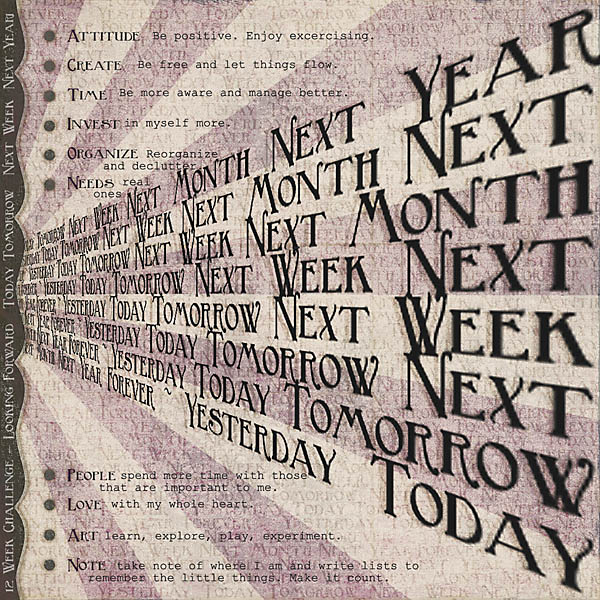 12 Week Challenge ~ Looking Forward Today Tomorrow Next Week Next Year!
Attitude Be positive. Enjoy excercising.
Create Be free and let things flow.
Time Be more aware and manage better.
Invest in myself more.
Organize Reorganize
and declutter
Needs real
ones
Year
Tomorrow Next Week Next Month Next
Today Tomorrow Next Week Next Month Next
Yesterday Today Tomorrow Next Week Next Month
Yesterday Today Tomorrow Next Week Next
Year Forever ~ Yesterday Today Tomorrow Next Week
Year Forever ~ Yesterday Today Tomorrow Next
Next Year Forever ~ Yesterday Today Tomorrow
Month Next Year Forever ~ Yesterday Today
People spend more time with those
that are important to me.
Love with my whole heart.
Art learn, explore, play, experiment.
Note take note of where I am and write lists to
remember the little things. Make it count.